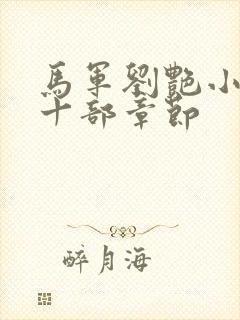 馬軍劉艷小
十部章節
醉月海